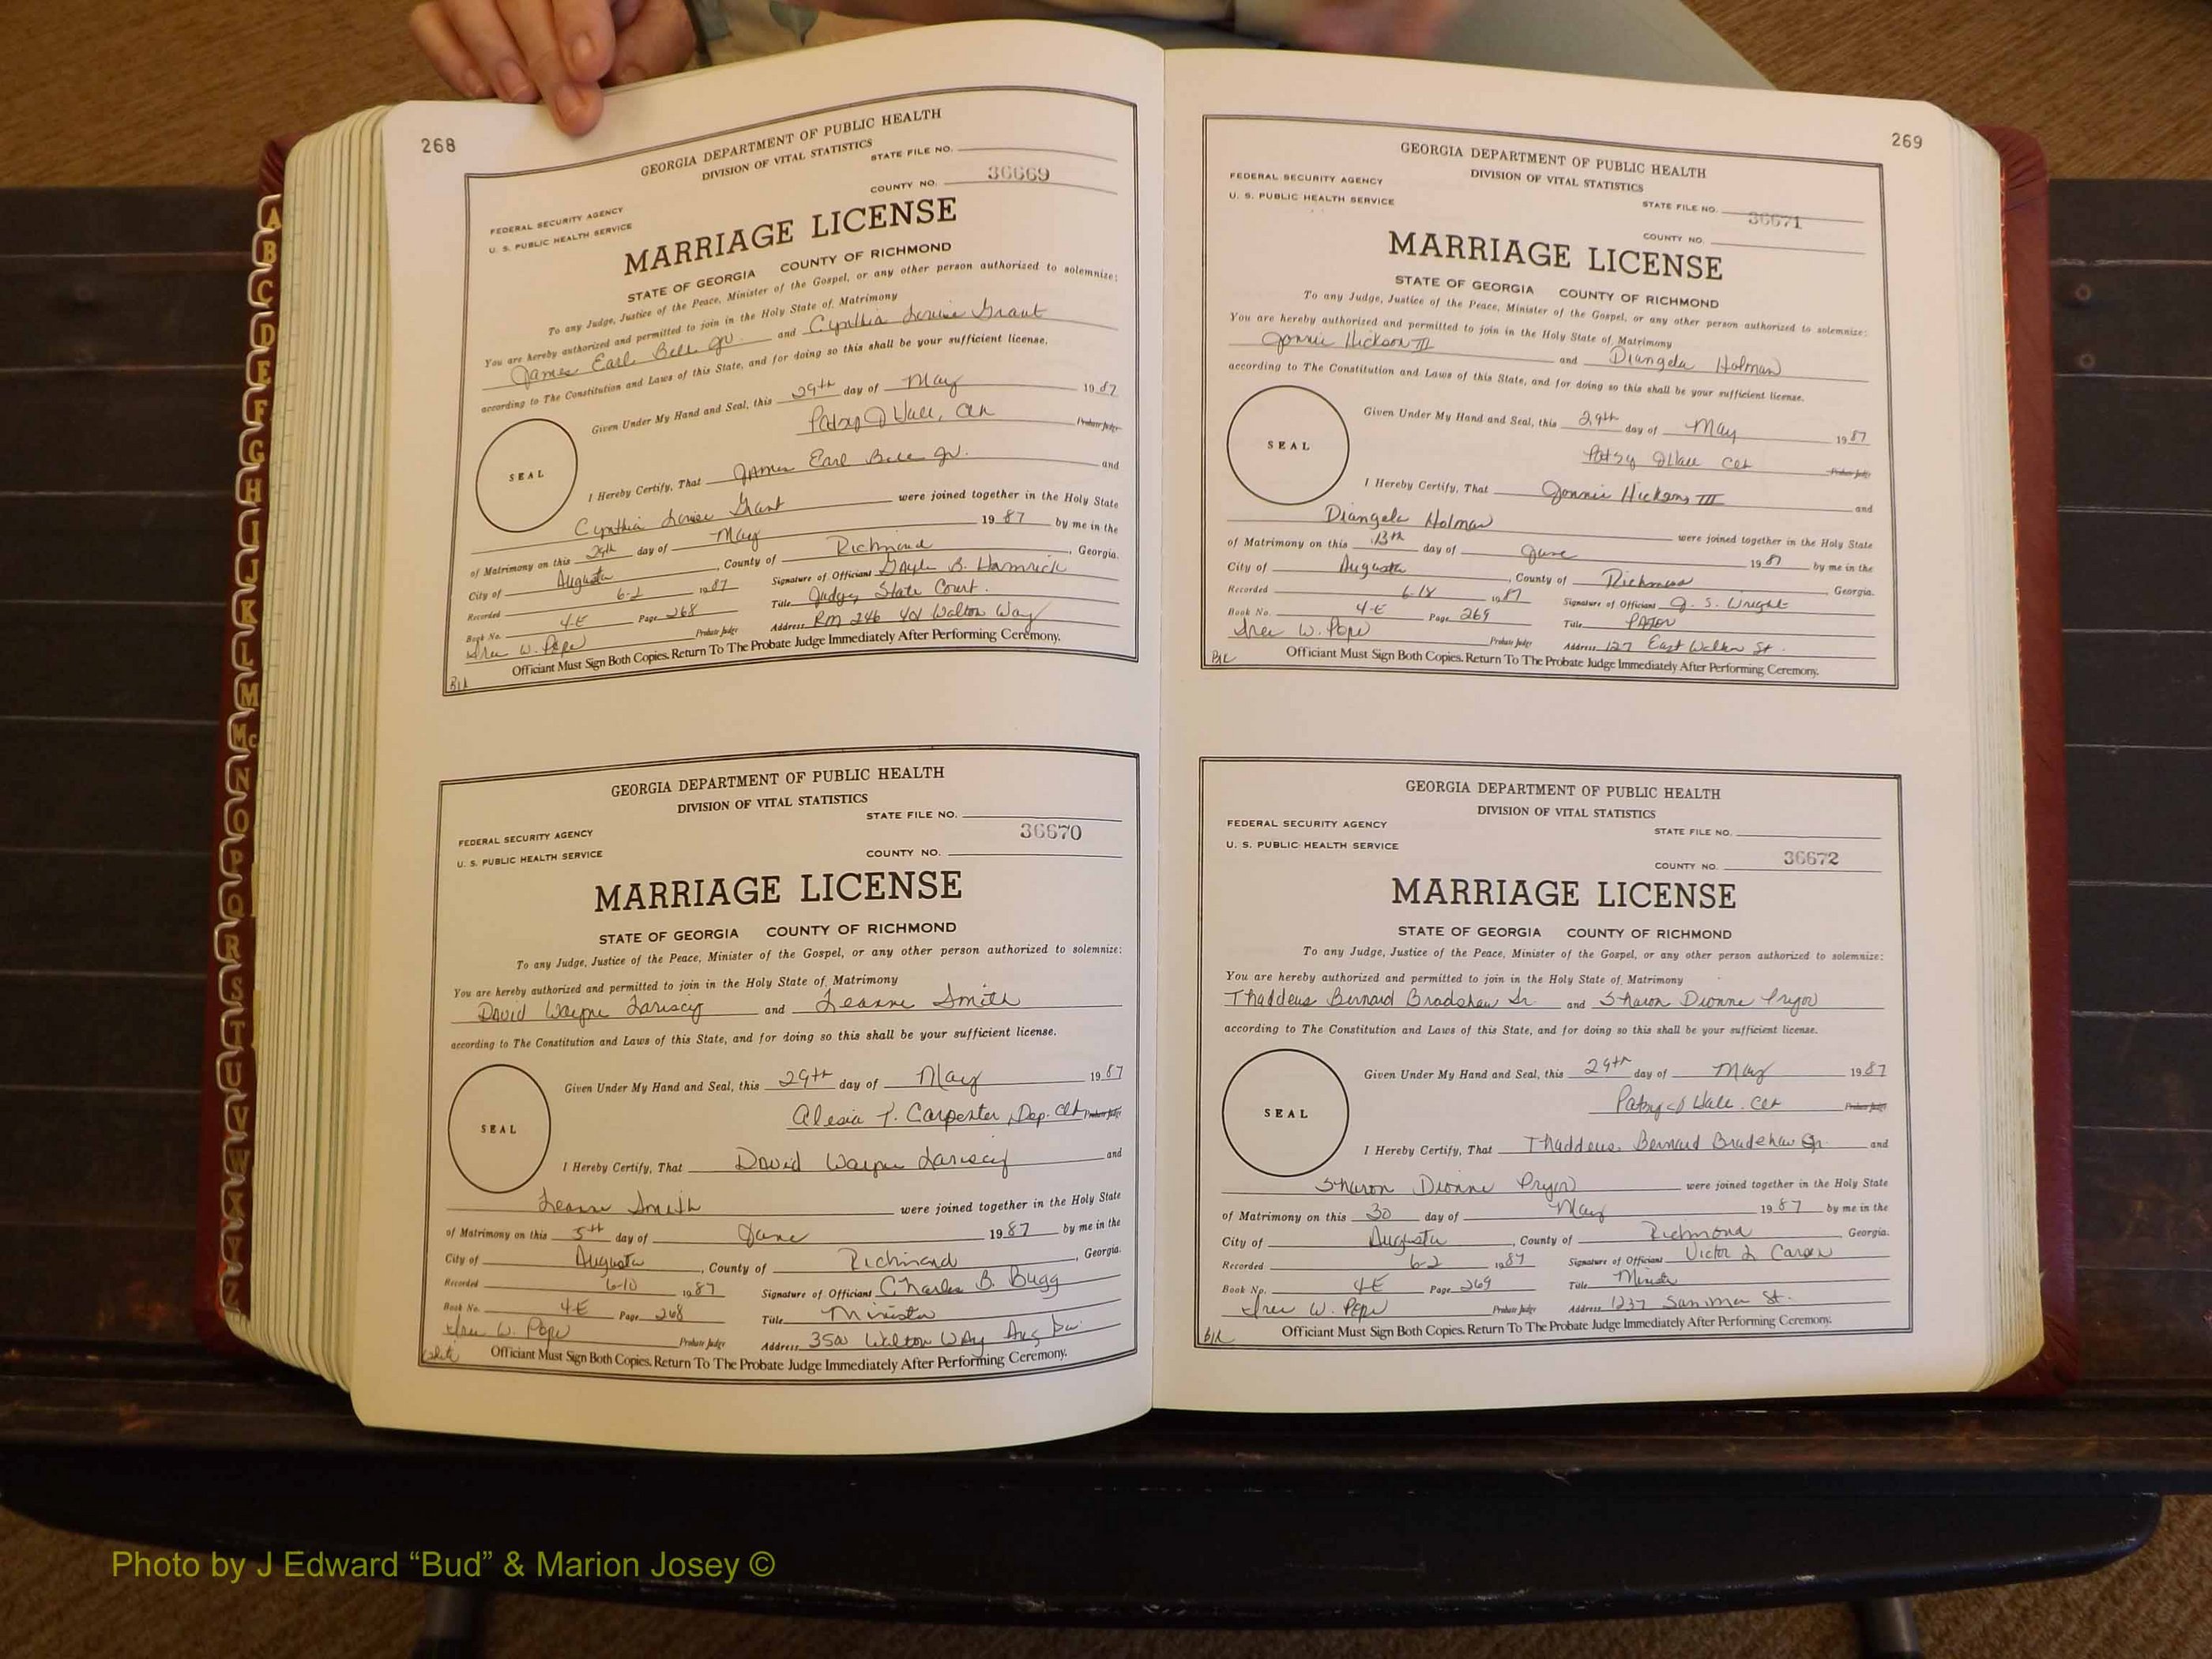 268
GEORGIA DEPARTMENT OF PUBLIC HEALTH
DIVISION OF VITAL STATISTICS
STATE FILE NO.
36669
COUNTY NO.
FEDERAL SECURITY AGENCY
U. S. PUBLIC HEALTH SERVICE
MARRIAGE LICENSE
STATE OF GEORGIA COUNTY OF RICHMOND
To any Judge, Justice of the Peace, Minister of the Gospel, or any other person authorized to solemnize:
You are hereby authorized and permitted to join in the Holy State of Matrimony
James Earl Bell Jr. and Cynthia Louise Grant
according to The Constitution and Laws of this State, and for doing so this shall be your sufficient license.
Given Under My Hand and Seal, this 29th day of May 1987
Patsy J Hall, Clk Probate Judge
SEAL
I Hereby Certify, That James Earl Bell Jr. and
Cynthia Louise Grant were joined together in the Holy State
of Matrimony on this 29th day of May 1987 by me in the
City of Augusta, County of Richmond, Georgia.
Recorded 6-2 1987 Signature of Officiant Gayle B. Hamrick
Book No. 4-E Page 268 Title Judge, State Court.
W. Pope Probate Judge Address RM 246 401 Walton Way
Officiant Must Sign Both Copies. Return To The Probate Judge Immediately After Performing Ceremony.
GEORGIA DEPARTMENT OF PUBLIC HEALTH
DIVISION OF VITAL STATISTICS
STATE FILE NO.
36670
FEDERAL SECURITY AGENCY
U. S. PUBLIC HEALTH SERVICE
COUNTY NO.
MARRIAGE LICENSE
STATE OF GEORGIA COUNTY OF RICHMOND
To any Judge, Justice of the Peace, Minister of the Gospel, or any other person authorized to solemnize:
You are hereby authorized and permitted to join in the Holy State of Matrimony
David Wayne Lariscy and Leanne Smith
according to The Constitution and Laws of this State, and for doing so this shall be your sufficient license.
Given Under My Hand and Seal, this 29th day of May 1987
Alesia T. Carpenter, Dep. Clk Probate Judge
SEAL
I Hereby Certify, That David Wayne Lariscy and
Leanne Smith were joined together in the Holy State
of Matrimony on this 5th day of June 1987 by me in the
City of Augusta, County of Richmond, Georgia.
Recorded 6-10 1987 Signature of Officiant Charles B. Bugg
Book No. 4-E Page 268 Title Minister
W. Pope Probate Judge Address 3500 Walton Way Aug Ga.
Officiant Must Sign Both Copies. Return To The Probate Judge Immediately After Performing Ceremony.
269
GEORGIA DEPARTMENT OF PUBLIC HEALTH
DIVISION OF VITAL STATISTICS
FEDERAL SECURITY AGENCY
U. S. PUBLIC HEALTH SERVICE
STATE FILE NO.
36671
COUNTY NO.
MARRIAGE LICENSE
STATE OF GEORGIA COUNTY OF RICHMOND
To any Judge, Justice of the Peace, Minister of the Gospel, or any other person authorized to solemnize:
You are hereby authorized and permitted to join in the Holy State of Matrimony
Jonnie Hickson III and Diangela Holman
according to The Constitution and Laws of this State, and for doing so this shall be your sufficient license.
Given Under My Hand and Seal, this 29th day of May 1987
Patsy J Hall Clk Probate Judge
SEAL
I Hereby Certify, That Jonnie Hickson III and
Diangela Holman were joined together in the Holy State
of Matrimony on this 13th day of June 1987 by me in the
City of Augusta, County of Richmond Georgia.
Recorded 6-18 1987 Signature of Officiant J. S. Wright
Book No. 4-E Page 269 Title Pastor
W. Pope Probate Judge Address 127 East Walker St.
Officiant Must Sign Both Copies. Return To The Probate Judge Immediately After Performing Ceremony.
GEORGIA DEPARTMENT OF PUBLIC HEALTH
DIVISION OF VITAL STATISTICS
FEDERAL SECURITY AGENCY
U. S. PUBLIC HEALTH SERVICE
STATE FILE NO.
36672
COUNTY NO.
MARRIAGE LICENSE
STATE OF GEORGIA COUNTY OF RICHMOND
To any Judge, Justice of the Peace, Minister of the Gospel, or any other person authorized to solemnize:
You are hereby authorized and permitted to join in the Holy State of Matrimony
Thaddeus Bernard Bradshaw Sr. and Sharon Dionne Pryor
according to The Constitution and Laws of this State, and for doing so this shall be your sufficient license.
Given Under My Hand and Seal, this 29th day of May 1987
Patsy J Hall, Clk Probate Judge
SEAL
I Hereby Certify, That Thaddeus Bernard Bradshaw Sr. and
Sharon Dionne Pryor were joined together in the Holy State
of Matrimony on this 30 day of May 1987 by me in the
City of Augusta, County of Richmond Georgia.
Recorded 6-2 1987 Signature of Officiant Victor L
Book No. 4-E Page 269 Title
W. Pope Probate Judge Address 1237 St.
Officiant Must Sign Both Copies. Return To The Probate Judge Immediately After Performing Ceremony.
A
B
C
D
E
F
G
H
I
J
K
L
M
Mc
N
O
P
Q
R
S
T
U
V
W
X
Y
Z
Photo by J Edward “Bud” & Marion Josey ©